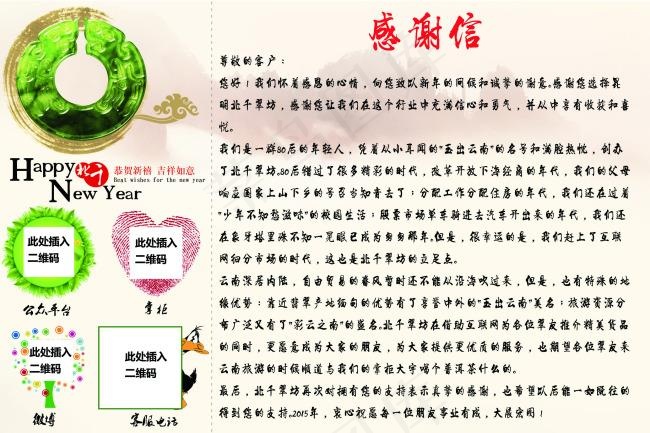 感谢信
尊敬的客户：
您好！我们怀着感恩的心情，向您致以新年的问候和诚挚的谢意。感谢您选择昆
明北千翠坊，感谢您让我们在这个行业中充满信心和勇气，并从中享有收获和喜
悦。
我们是一群80后的年轻人，凭着从小耳闻的"玉出云南"的名号和满腔热忱，创办
了北千翠坊。80后错过了很多精彩的时代，改革开放下海经商的年代，我们的父母
响应国家上山下乡的号召当知青去了；分配工作分配住房的年代，我们还在过着
"少年不知愁滋味"的校园生活；股票市场单车骑进去汽车开出来的年代，我们还
在象牙塔里殊不知一晃眼已成为匆匆那年。但是，很幸运的是，我们赶上了互联
网细分市场的时代，这也是北千翠坊的立足点。
云南深居内陆，自由贸易的春风暂时还不能从沿海吹过来，但是，也有特殊的地
缘优势：靠近翡翠产地缅甸的优势有了享誉中外的"玉出云南"美名；旅游资源分
布广泛又有了"彩云之南"的盛名。北千翠坊在借助互联网为各位翠友推介精美货品
的同时，更愿意成为大家的朋友，为大家提供更优质的服务，也期望各位翠友来
云南旅游的时候顺道与我们的掌柜大宇喝个普洱茶什么的。
最后，北千翠坊再次对拥有您的支持表示真挚的感谢，也希望以后能一如既往的
得到您的支持。2015年，衷心祝愿每一位朋友事业有成，大展宏图！
Happy
北千
恭贺新禧 吉祥如意
Best wishes for the new year
New Year
此处插入
二维码
公众平台
此处插入
二维码
掌柜
此处插入
二维码
微博
此处插入
二维码
客服电话